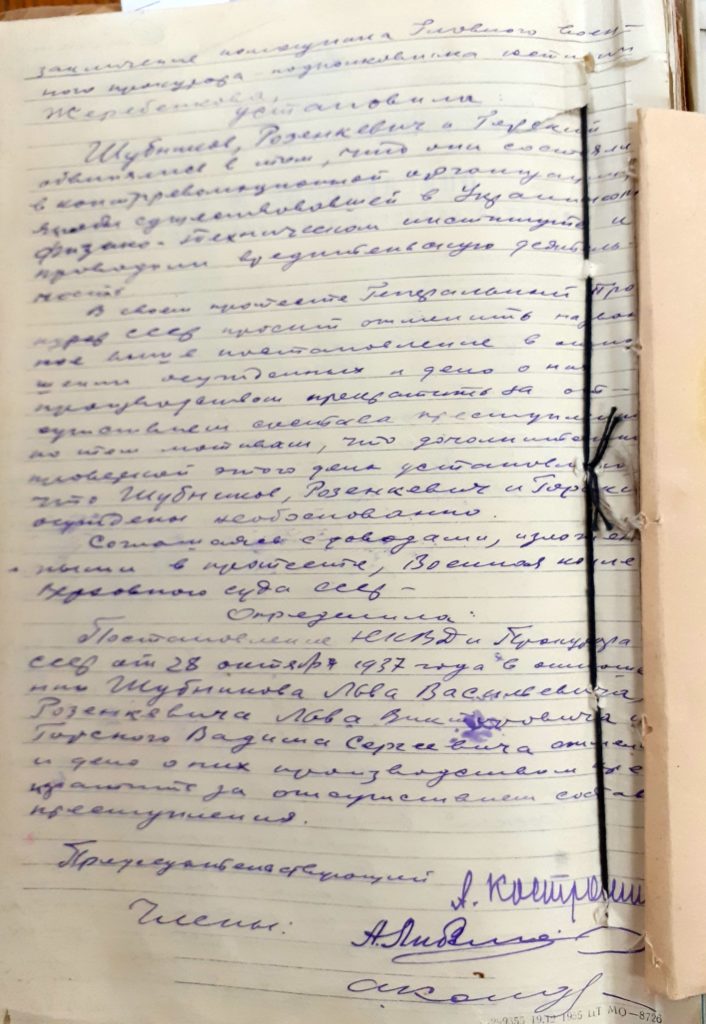 заключение помощника Главного Воен-
ного прокурора - подполковника юстиции
Жеребенкова,
установила:
Шубников, Розенкевич и Горский
обвинялись в том, что они состояли
в контрреволюционной организации
якобы существовавшей в Украинском
физико-техническом институте и
проводили вредительскую деятель-
ность.
В своем протесте Генеральный Про
курор СССР просит отменить
ное выше постановление в отно
шении осужденных и дело о них
производством прекратить за от-
сутствием состава преступления
по тем мотивам, что дополнительной
проверкой этого дела установлено
что Шубников, Розенкевич и Горский
осуждены необоснованно.
Соглашаясь с доводами, изложен
ными в протесте, Военная колле
Верховного суда СССР -
Определила:
Постановление НКВД и Прокурора
СССР от 28 октября 1937 года в отноше
нии Шубникова Льва Васильевича,
Розенкевича Льва Викторовича и
Горского Вадима Сергеевича отмен
и дело о них производством пре
кратить за отсутствием состав
преступления.
Председательствующий
А. Костромин
Члены:
19.12 1955 ЦТ МО—8726